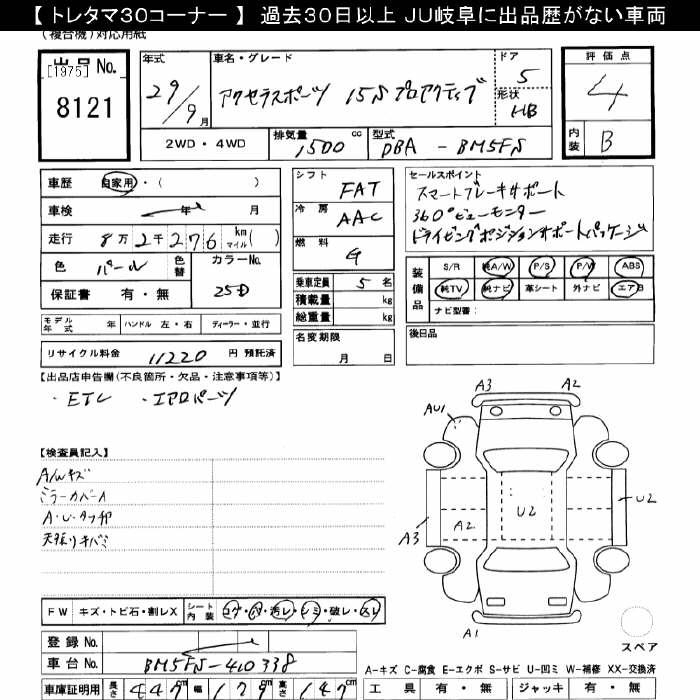 【 トレタマ30コーナー 】 過去30日以上 JU岐阜に出品歴がない車両
(複合機)対応用紙
出品 No.
[1975]
8121
年式
29/9月
車名・グレード
アクセラスポーツ 15S プロアクティブ
ドア
5
形状
HB
評価点
4
内装
B
2WD・4WD
排気量
1500 cc
型式
DBA - BM5FS
車歴
自家用・( )
車検
年 月
走行
8万2千276 km マイル( )
色
パール
色替
カラーNo.
25D
保証書 有・無
モデル年式 年 ハンドル 左・右 ディーラー・並行
リサイクル料金 11220 円 預託済
シフト
FAT
冷房
AAC
燃料
G
乗車定員 5 名
積載量 kg
総重量 kg
名変期限
月 日
セールスポイント
スマートブレーキサポート
360°ビューモニター
ドライビングポジションサポートパッケージ
装備品
S/R 純A/W P/S P/W ABS
純TV 純ナビ 革シート 外ナビ エアB
ナビ型番:
後日品
【出品店申告欄(不良箇所・欠品・注意事項等)】
・ETC ・エアロパーツ
【検査員記入】
A/Wキズ
ミラーカバーA
A・U・タッチ印
天張リキバミ
A3 A2
AU1
U2
U2
A2
A3
A1
スペア
FW キズ・トビ石・割レX
シート内装 コゲ・穴・汚レ・シミ・破レ・スレ
登録 No.
車台 No. BM5FS-410338
車庫証明用 長さ 447cm 幅 179cm 高さ 147cm
A-キズ C-腐食 E-エクボ S-サビ U-凹ミ W-補修 XX-交換済
工具 有・無 ジャッキ 有・無